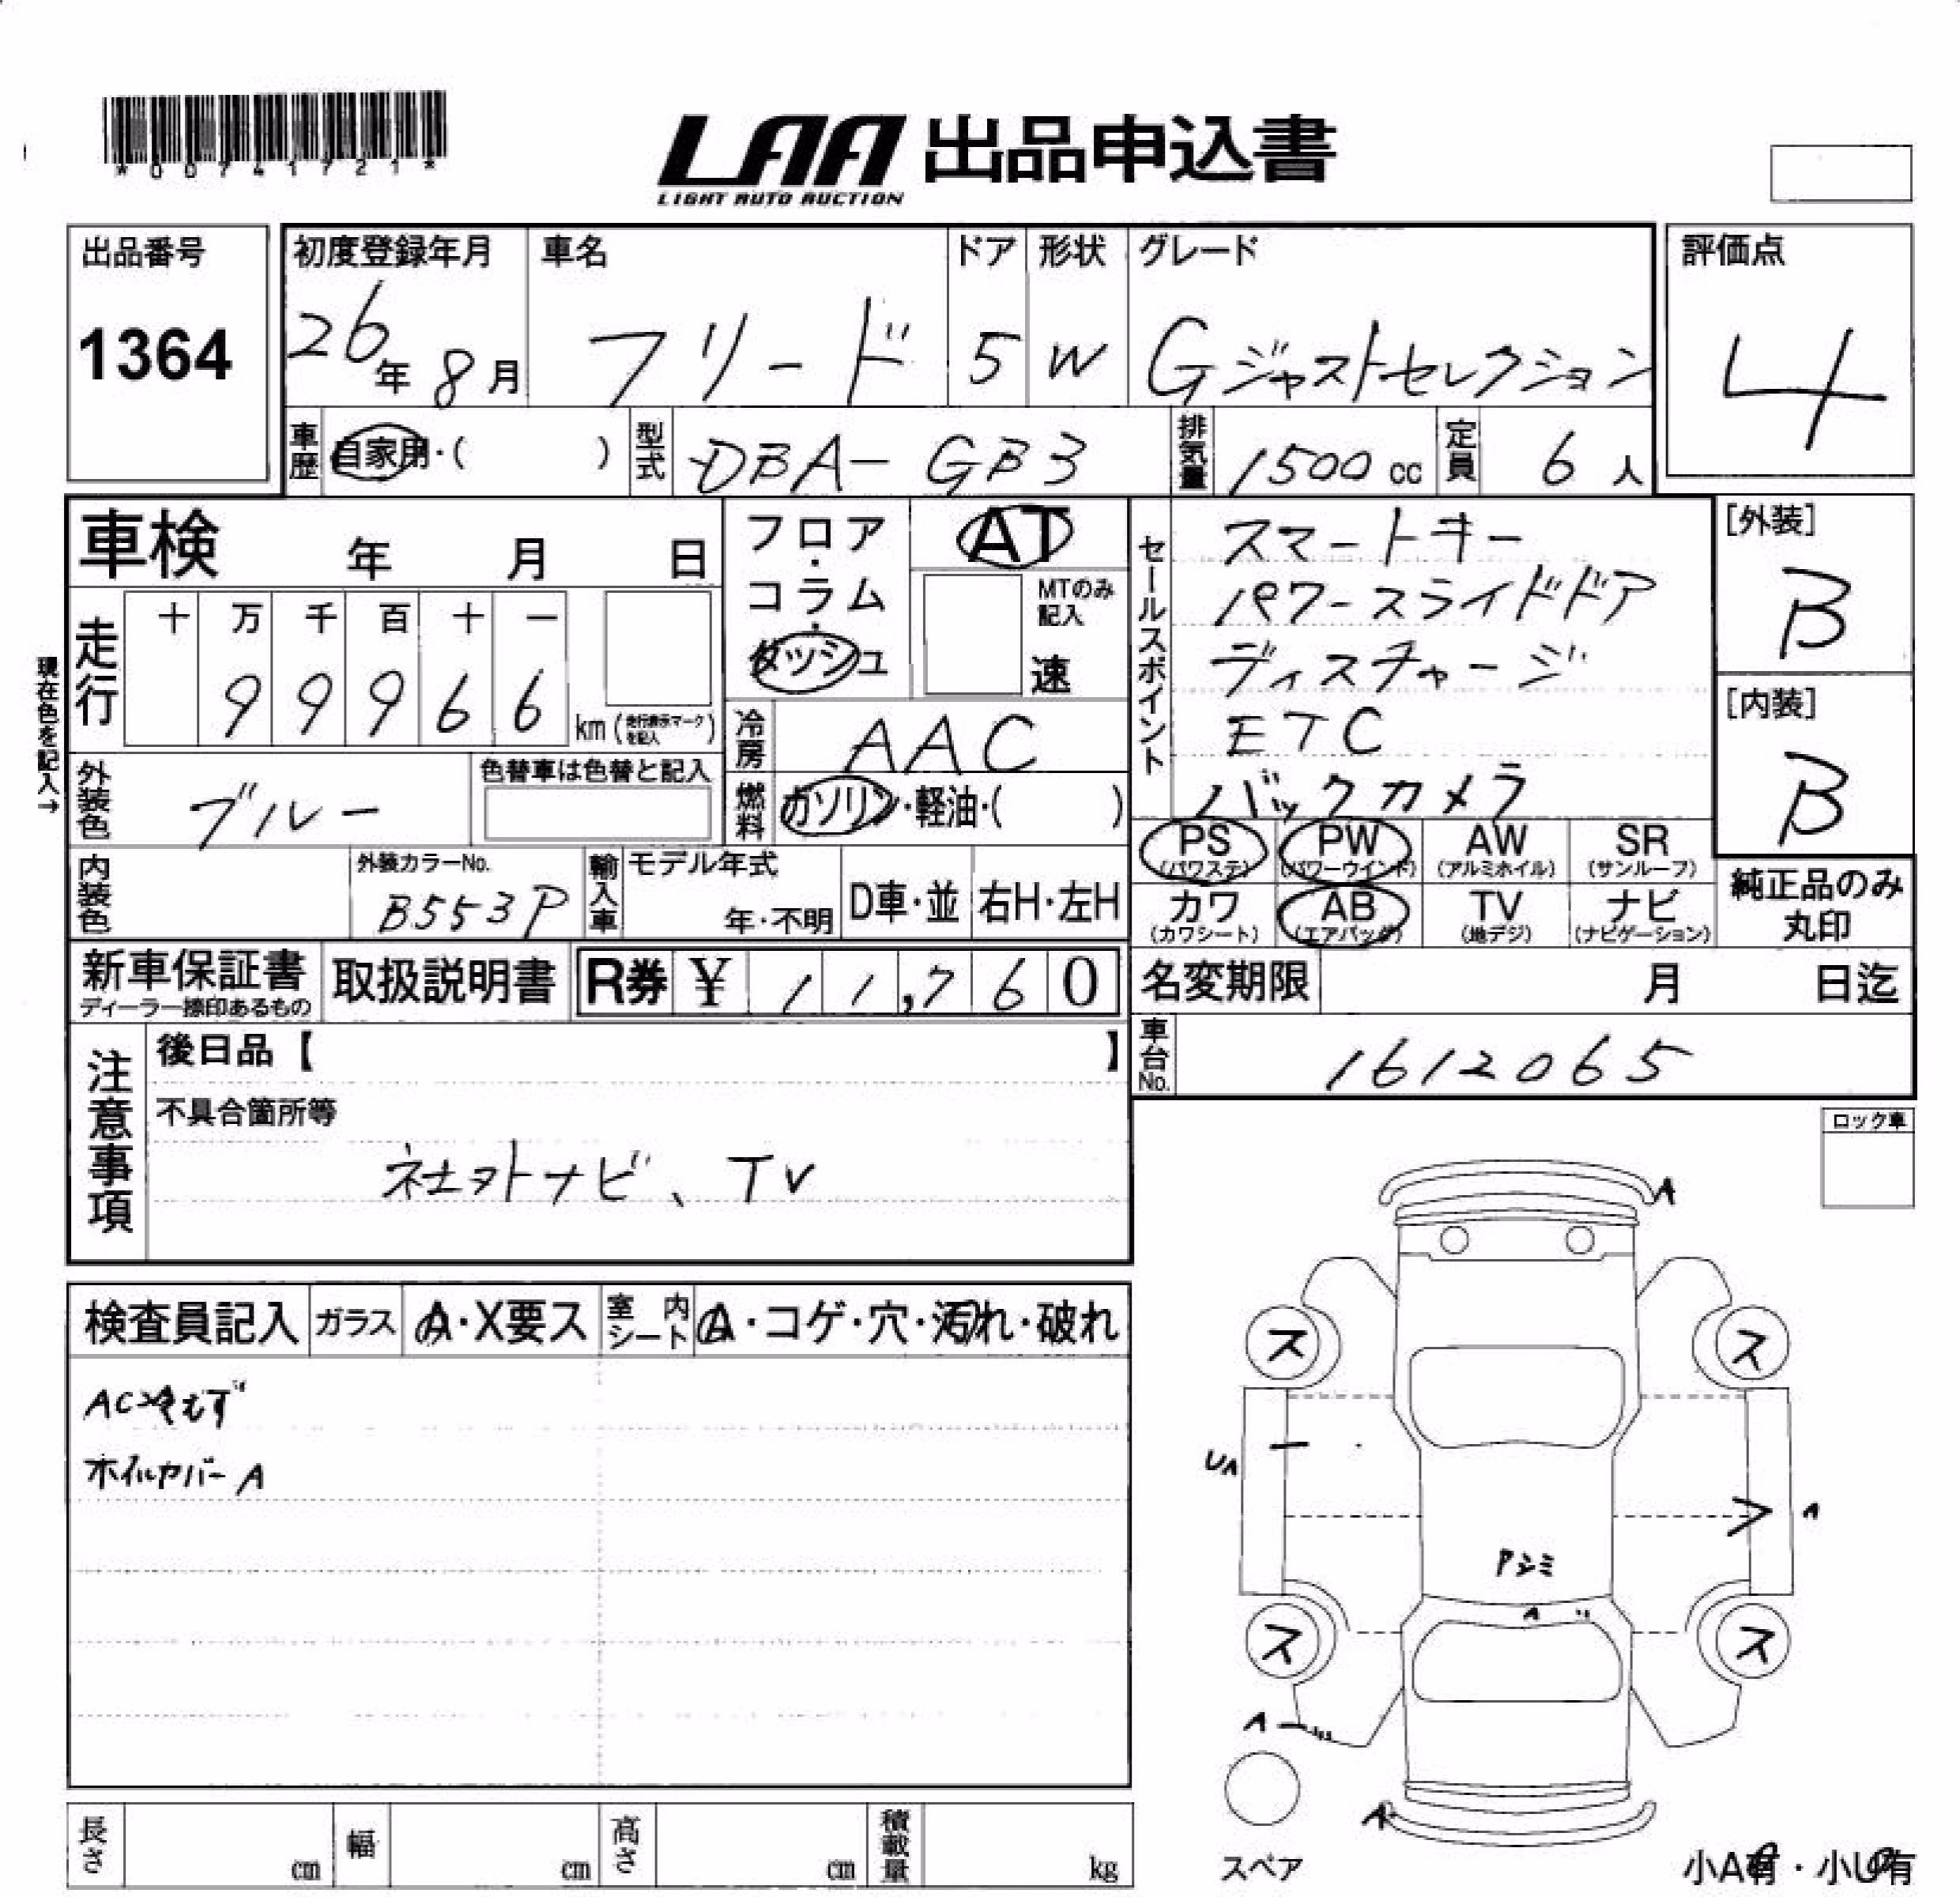 *00741721*
LAA 出品申込書
LIGHT AUTO AUCTION
出品番号
1364
初度登録年月
26年 8月
車名
フリード
ドア
5
形状
W
グレード
Gジャストセレクション
評価点
4
車歴 自家用・( )
型式 DBA-GB3
排気量 1500cc
定員 6人
車検 年 月 日
フロア・コラム・ダッシュ
AT
MTのみ記入
速
セールスポイント
スマートキー
パワースライドドア
ディスチャージ
ETC
バックカメラ
[外装]
B
[内装]
B
現在色を記入→
走行
十 万 千 百 十 一
9 9 9 6 6
km (走行表示マークを記入)
冷房 AAC
外装色 ブルー
色替車は色替と記入
燃料 ガソリン・軽油・( )
PS (パワステ)
PW (パワーウインド)
AW (アルミホイル)
SR (サンルーフ)
内装色
外装カラーNo.
B553P
輸入車
モデル年式
年・不明
D車・並
右H・左H
カワ (カワシート)
AB (エアバッグ)
TV (地デジ)
ナビ (ナビゲーション)
純正品のみ丸印
新車保証書
ディーラー捺印あるもの
取扱説明書
R券 ¥ 11,760
名変期限 月 日迄
車台No. 1612065
注意事項
後日品【 】
不具合箇所等
社外ナビ、TV
ロック車
検査員記入
ガラス A・X要ス
室内シート A・コゲ・穴・汚れ・破れ
AC冷えず
ホイルカバーA
A
ス ス
UA
A
Pシミ
A
ス ス
A
A
スペア
小A有・小U有
長さ cm
幅 cm
高さ cm
積載量 kg